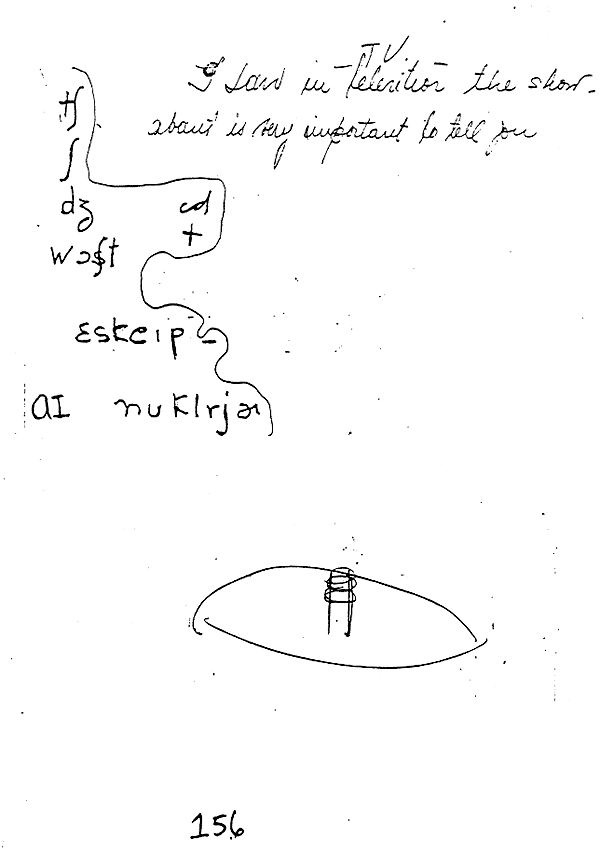 TV
I saw in television the show-
about is very important to tell you
tʃ
ʃ
dʒ cd
wɔʃt +
ɛskeip -
aI nuklrjər
156